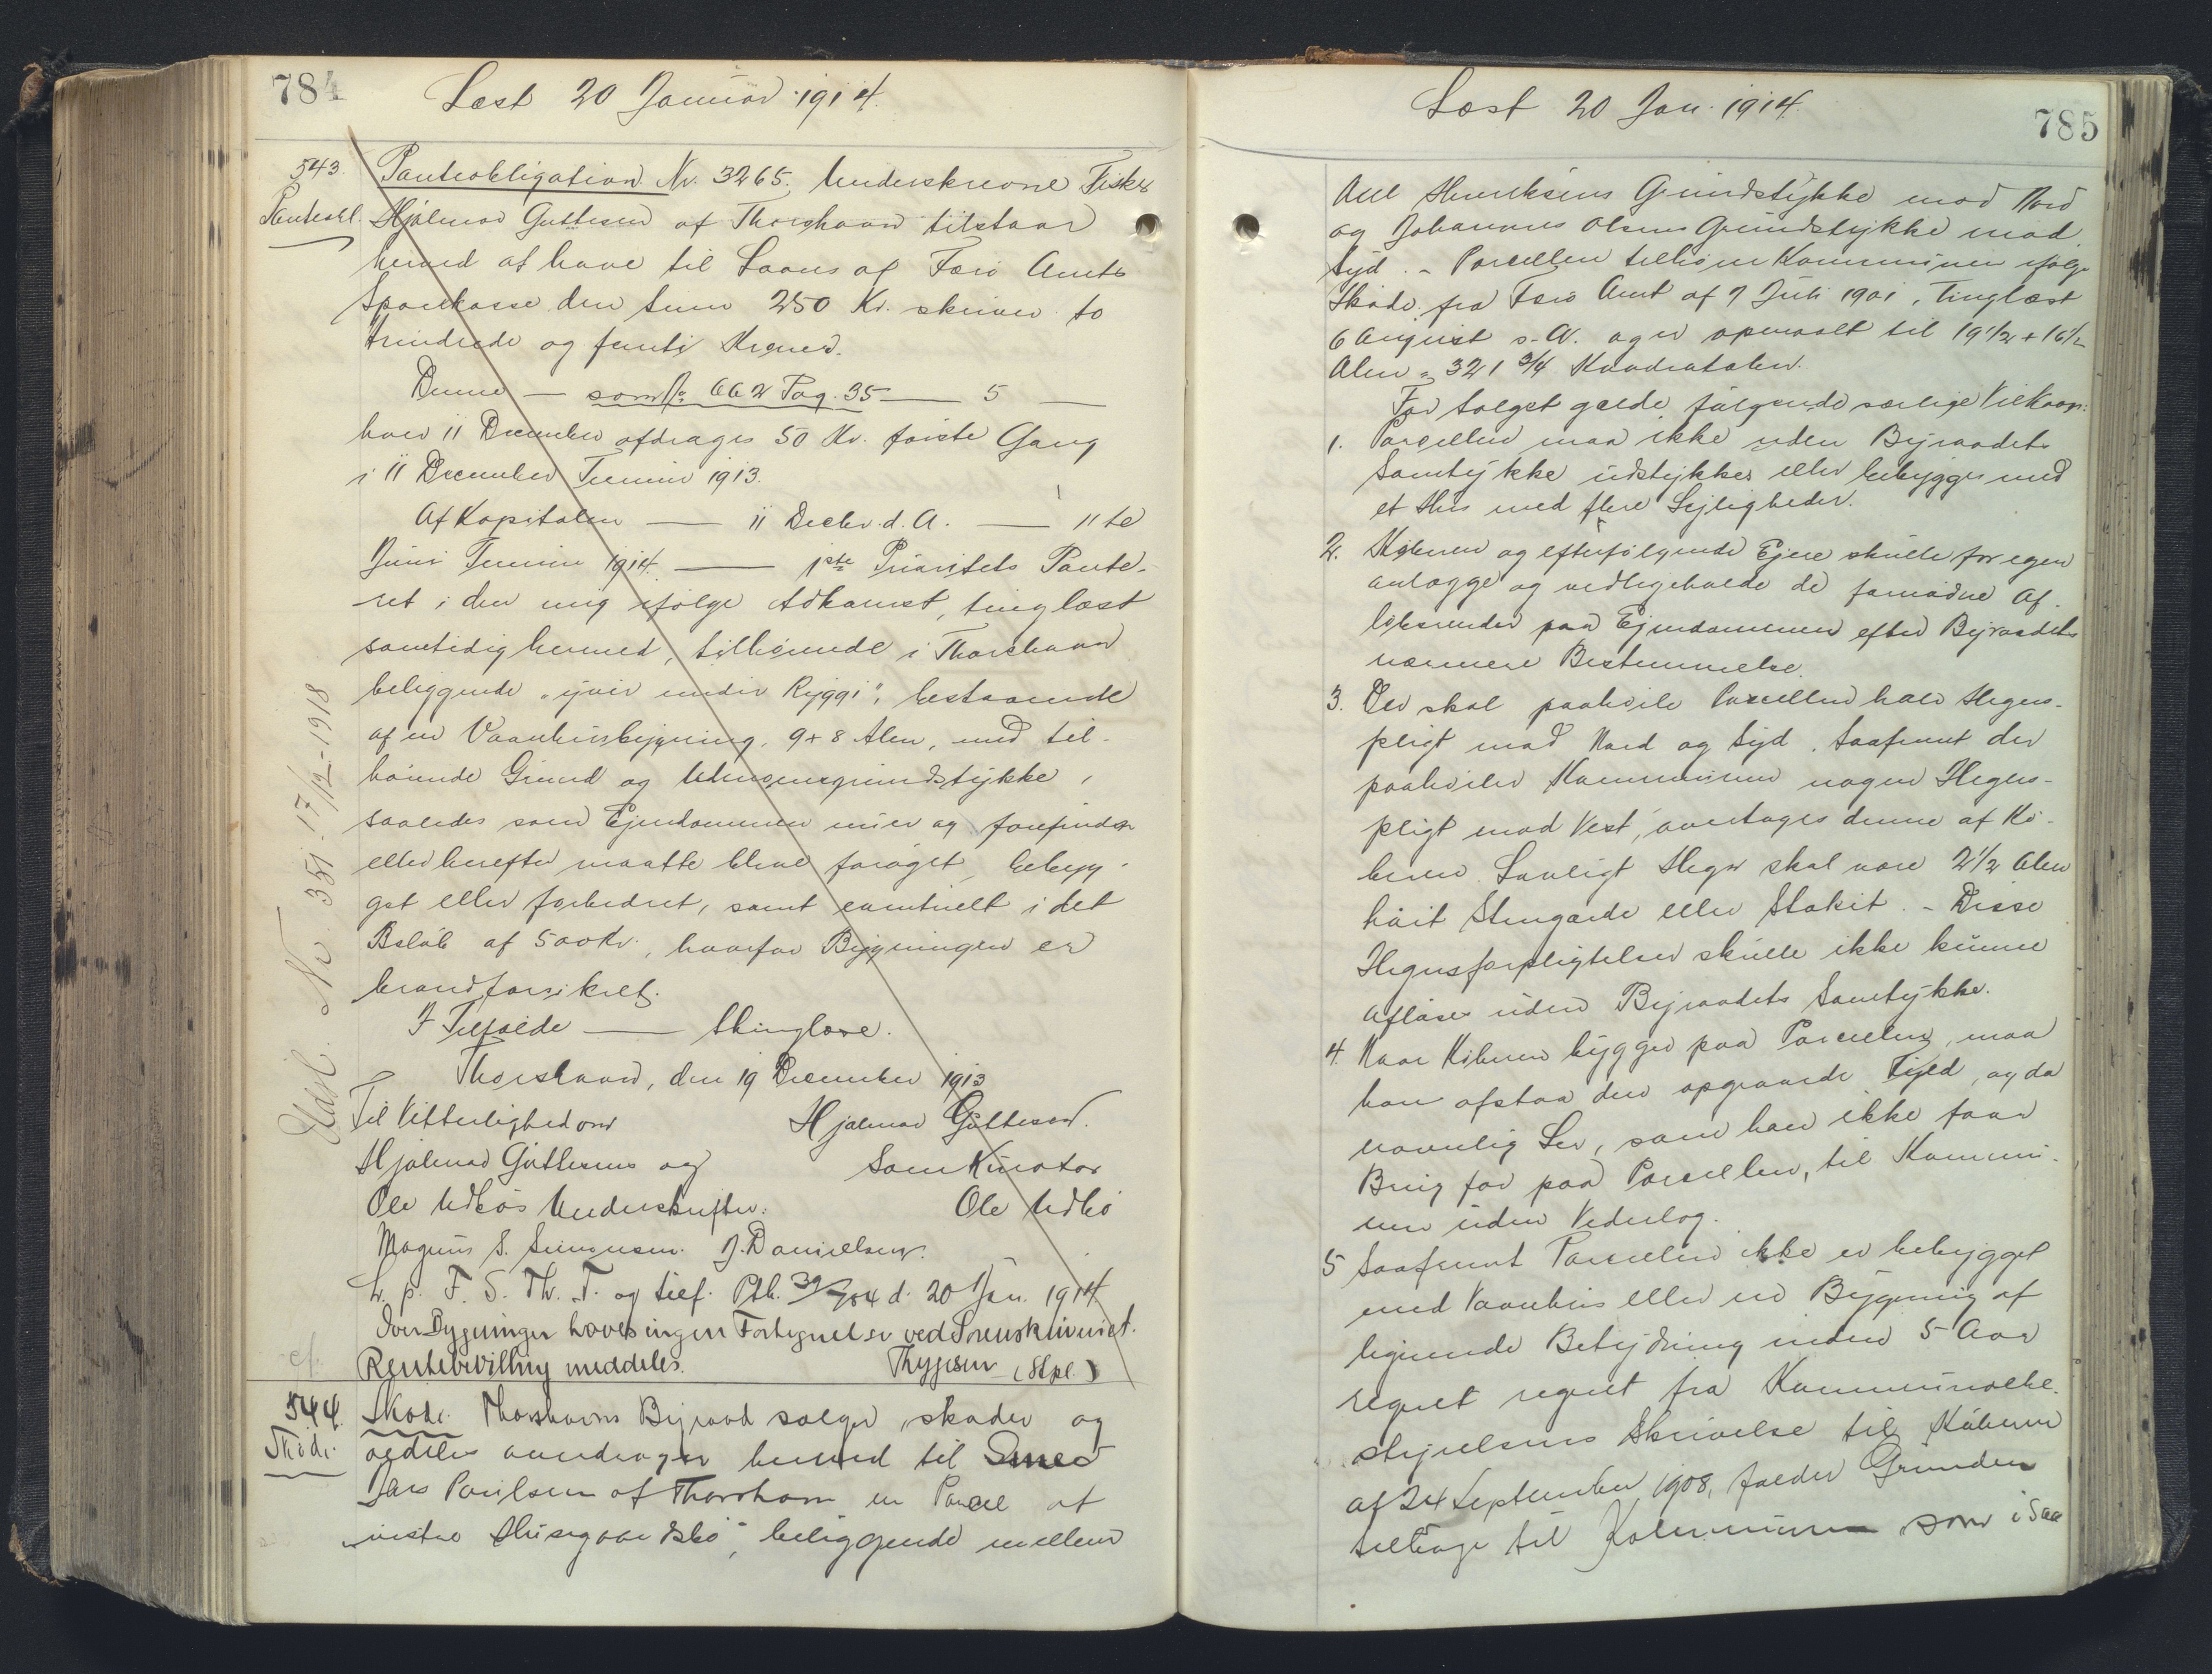 784
Læst 20 Januar 1914.
543.
Panteobl.
Panteobligation Nr. 3265. Underskrevne Fisker
Hjalmar Guttesen af Thorshavn tilstaar
herved at have til Laans af Færø Amts
Sparekasse den Sum 250 Kr. skriver to
Hundrede og femti Kroner.
Denne — som fo 662 Pag. 35 — 5 —
hver 11 December afdrages 50 Kr. første Gang
i 11 December Termin 1913.
Af Kapitalen — 11 Decbr. d. A. — 11te
Juni Termin 1914. — 1ste Prioritets Pante-
ret i den mig ifølge Adkomst, tinglæst
samtidig hermed, tilhørende i Thorshavn
beliggende „yvir undir Ryggi", bestaaende
af en Vaanhusbygning, 9 + 8 Alen, med til-
hørende Grund og Udenomsgrundstykke,
saaledes som Ejendommen nu er og forefindes
eller herefter maatte blive forøget, bebyg-
get eller forbedret, samt eventuelt i det
Beløb af 500 Kr., hvorfor Bygningen er
brandforsikret.
I Tilfælde — skingløse.
Thorshavn, den 19 December 1913
Til Vitterlighed om
Hjalmar Guttesen.
Hjalmar Guttesens og
Som Kurator
Ole Udbøs Underskrifter:
Ole Udbø
Magnus S. Simonsen. J. Danielsen.
L. p. F. S. Th. T. og tief. Ptb. d. 20 Jan. 1914
Over Bygninger haves ingen Fortegnelse ved Sorenskriveriet.
cf.
Rentebevilling meddeles.
Thygesen (Stpl.)
Udsl. Nr. 351. 17/12-1918
544.
Skøde.
Skøde. Thorshavns Byraad sælger, skøder og
aldeles overdrager herved til Smed
Jørs Poulsen af Thorshavn en Parcel af
„vestre Husegaardsbø", beliggende mellem
785
Læst 20 Jan. 1914.
Aul Henriksens Grundstykke mod Nord
og Johannes Olsens Grundstykke mod
Syd. – Parcellen tilhører Kommunen ifølge
Skøde fra Færø Amt af 7 Juli 1901, Tinglæst
6 August s. A. og er opmaalt til 19 1/2 + 16 1/2
Alen = 321 3/4 Kvadratalen.
For Salget gælde følgende særlige Vilkaar:
1. Parcellen maa ikke uden Byraadets
Samtykke udstykkes eller bebygges med
et Hus med flere Lejligheder.
2. Køberen og efterfølgende Ejere skulle for egen
anlægge og vedligeholde de fornødne Af-
løbsrender paa Ejendommen efter Byraadets
nærmere Bestemmelse.
3. Der skal paahvile Parcellen halv Hegns-
pligt mod Nord og Syd. Saafremt der
paahviler Kommunen nogen Hegns-
pligt mod Vest, overtages denne af Kø-
beren. Lovligt Hegn skal være 2 1/2 Alen
høit Stengærde eller Stakit. – Disse
Hegnsforpligtelser skulle ikke kunne
afløses uden Byraadets Samtykke.
4. Naar Køberen bygger paa Parcellen, maa
han afstaa den opgravede Fyld, og da
navnlig Ler, som han ikke faar
Brug for paa Parcellen, til Kommu-
nen uden Vederlag.
5 Saafremt Parcellen ikke er bebygget
med Vaanhus eller en Bygning af
lignende Betydning inden 5 Aar
regnet regnet fra Kommunalbe-
styrelsens Skrivelse til Køberen
af 24 September 1908, falder Grunden
tilbage til Kommunen som i saa